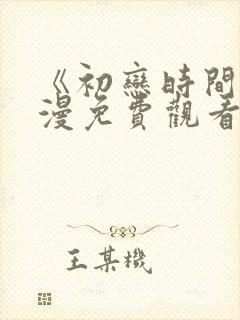 《初戀時間
漫免費觀看
王某機